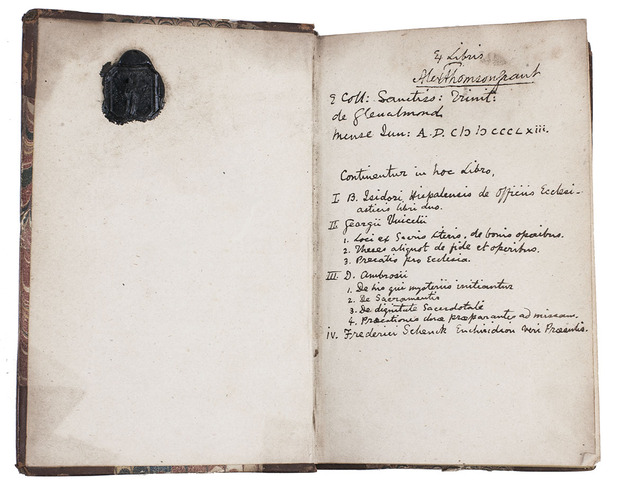 Ex Libris
Alex Thomson Grant
E Coll: Sanctiss: Trinit:
de Glenalmond
Mense Jun: A.D. CIƆ IƆ CCCLXiii.
Continentur in hoc Libro,
I B. Isidori Hispalensis de Officiis Ecclesi-
asticis libri duo.
II Georgii Vuicelii
1. Loci ex Sacris Literis, de bonis operibus.
2. Theses aliquot de fide et operibus.
3. Precatio pro Ecclesia.
III D. Ambrosii
1. De his qui mysteriis initiantur
2. De Sacramentis
3. De dignitate Sacerdotale
4. Precationes duæ præparantes ad missam.
IV. Frederici Schenck Enchiridion Veri Præsulis.